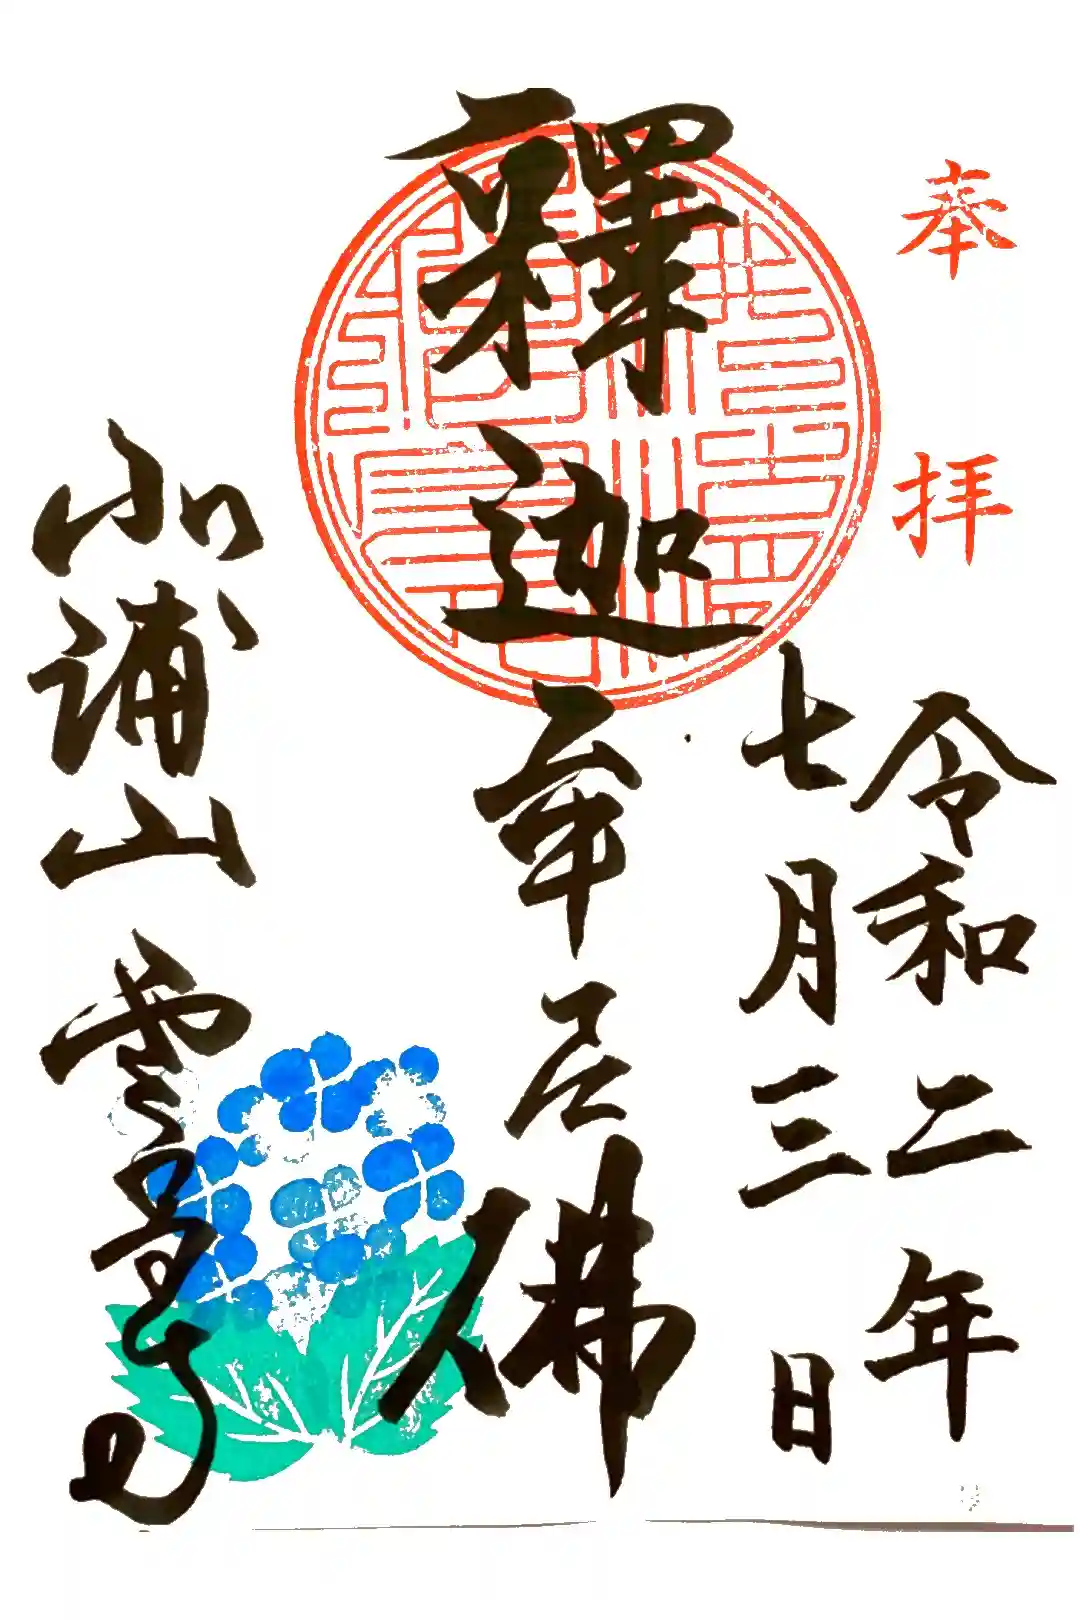 奉拝
令和二年
七月三日
釋迦牟尼佛
小浦山